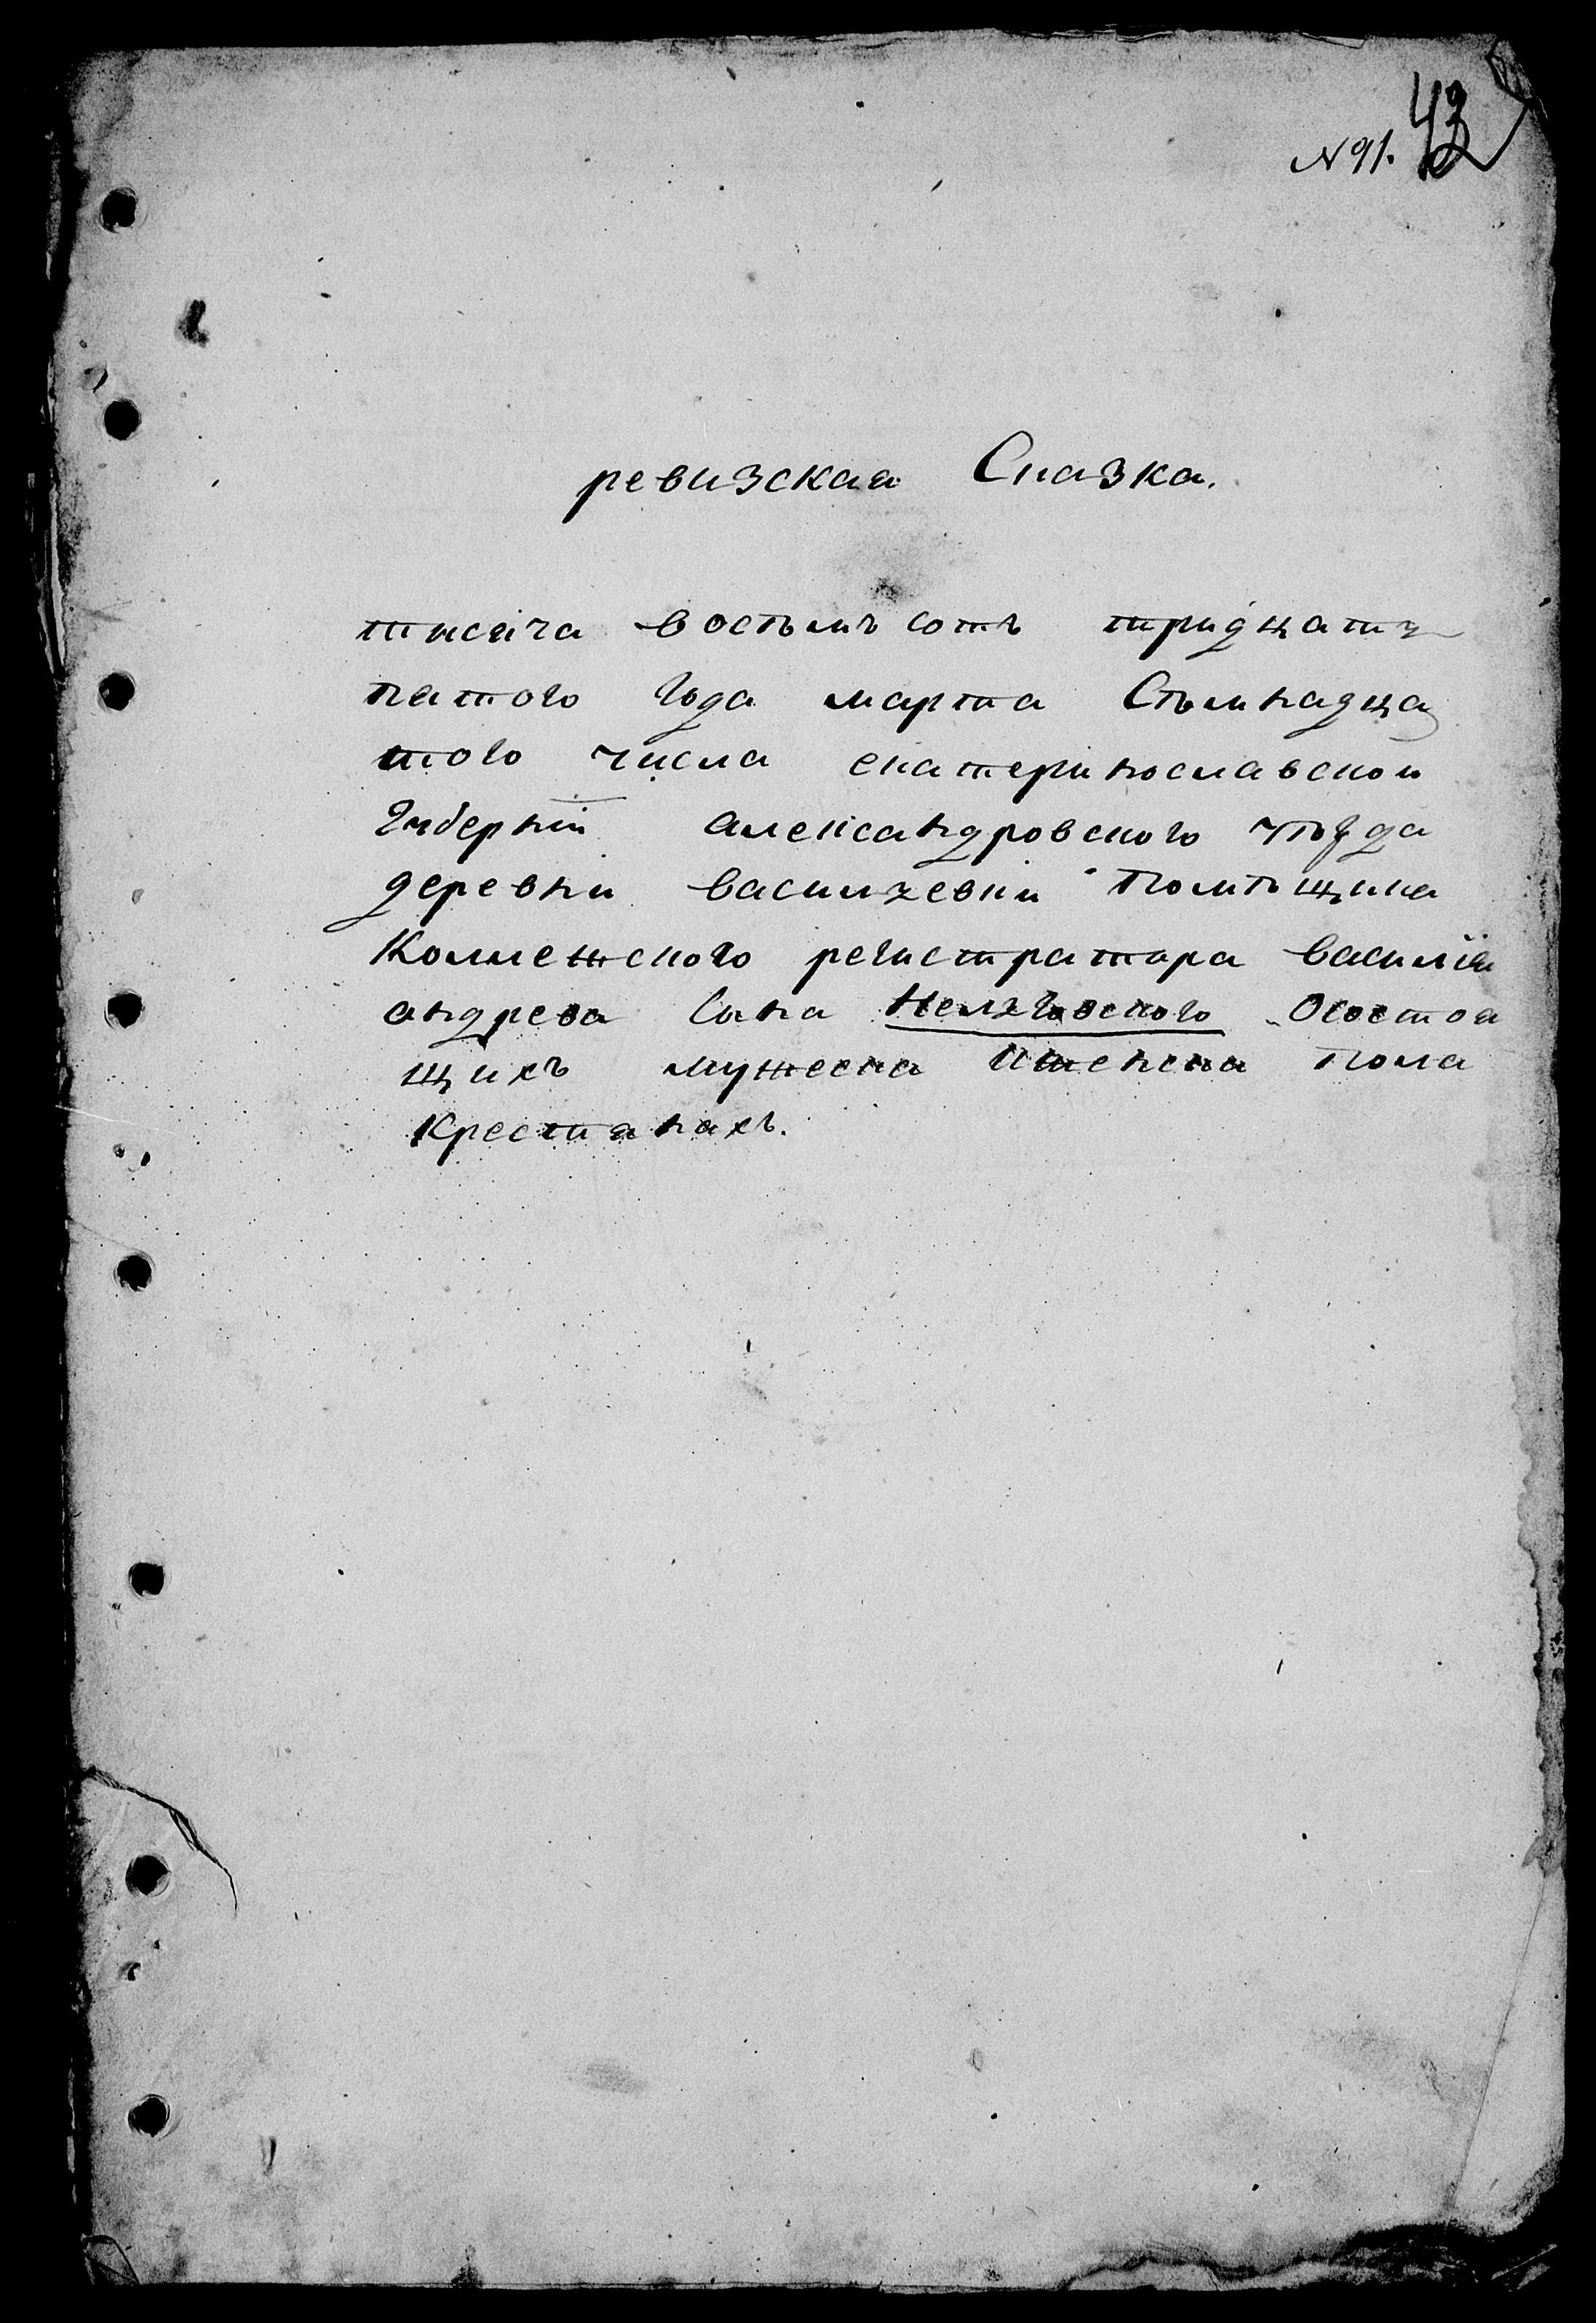 № 91. 43
ревизская Сказка.
тисяча восѣмъ сотъ тридцать
пятого года марта Сѣмнадца
того числа екатеринославской
Губерніи александровского уѣзда
деревни василевки Помѣщика
Коллежского регистратора василія
андрева Сина О состоя
щихъ мужеска и женска пола
Крестянахъ.